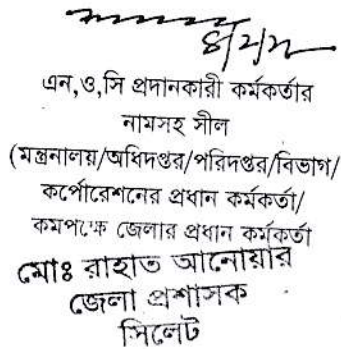 এন,ও,সি প্রদানকারী কর্মকর্তার
নামসহ সীল
(মন্ত্রনালয়/অধিদপ্তর/পরিদপ্তর/বিভাগ/
কর্পোরেশনের প্রধান কর্মকর্তা/
কমপক্ষে জেলার প্রধান কর্মকর্তা
মোঃ রাহাত আনোয়ার
জেলা প্রশাসক
সিলেট